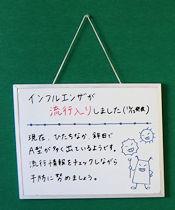 インフルエンザが
流行入りしました(12/5発表)
現在、ひたちなか、鉾田で
A型が多く出ているようです。
流行情報をチェックしながら
予防に努めましょう。